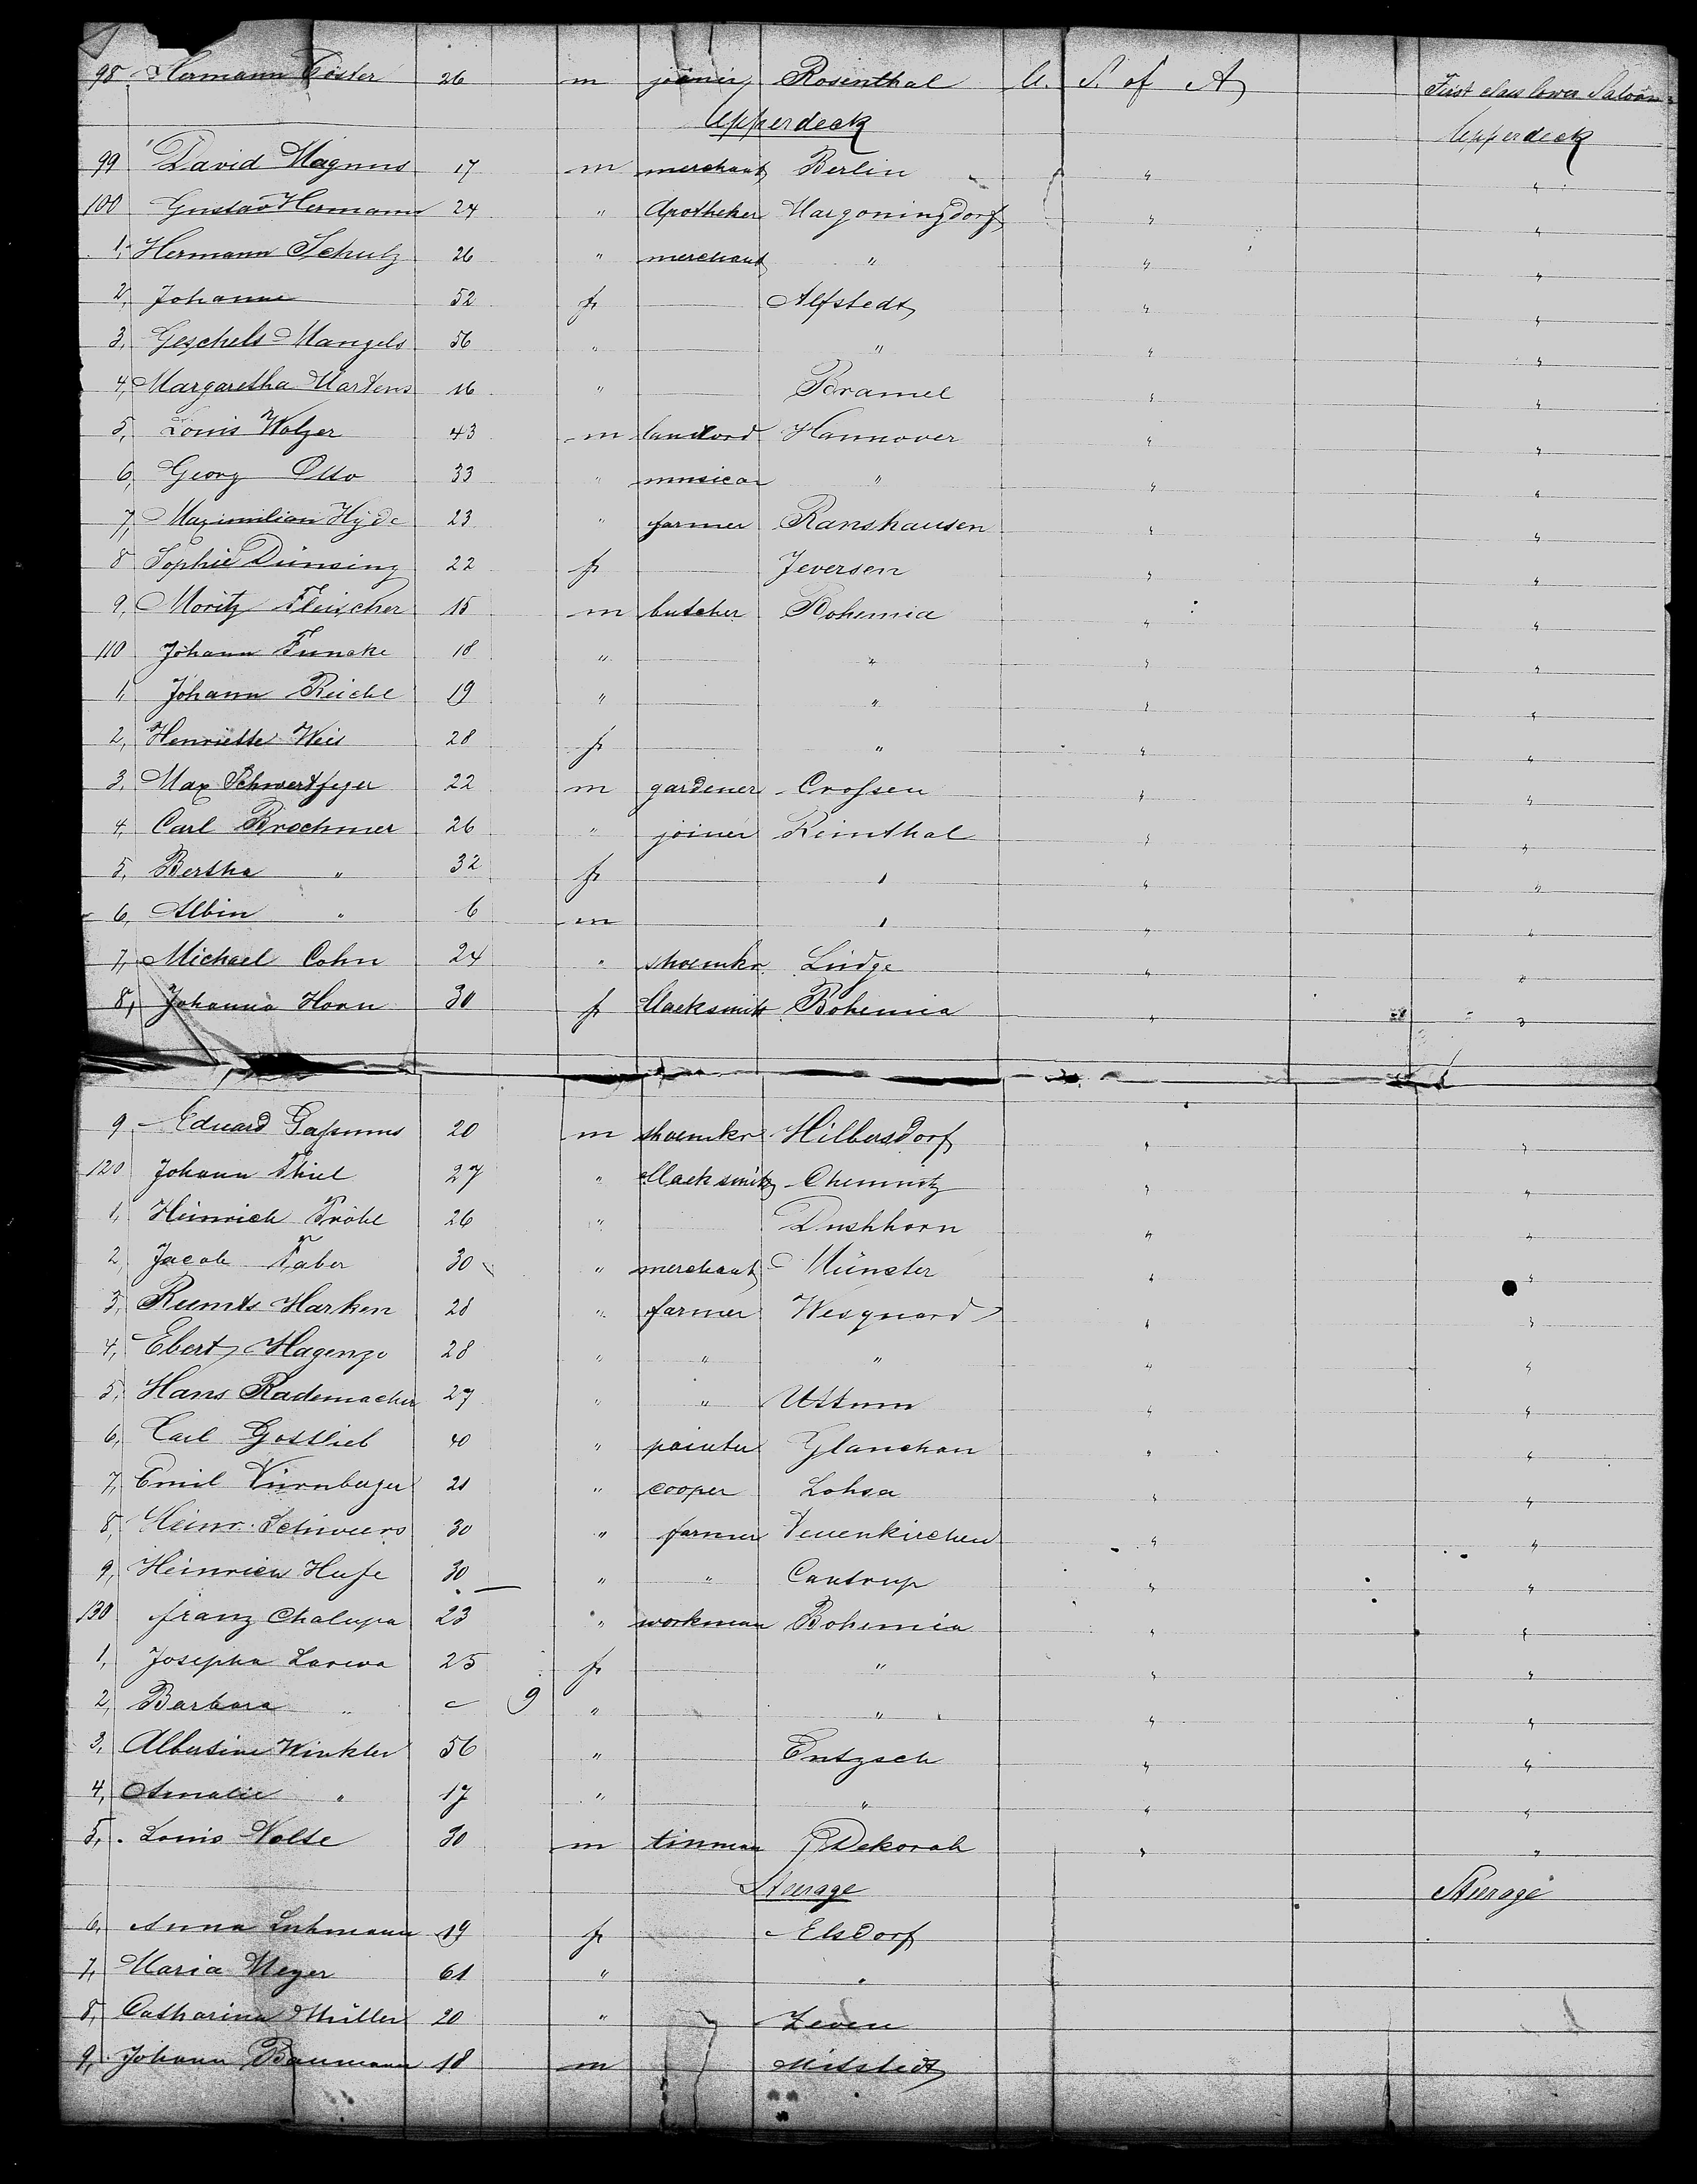 98 Hermann Cöster 26 m joiner Rosenthal U. S. of A First class lower Saloon
Upperdeck Upperdeck
99 David Magnus 17 m merchant Berlin " "
100 Gustav Hermann 24 " Apotheker Margoningdorf " "
1, Hermann Schulz 26 " merchant " " "
2, Johanne 52 f Alfstedt " "
3, Geschels Mangels 56 " " " "
4, Margaretha Martens 16 " Bramel " "
5, Louis Wolzer 43 m landlord Hannover " "
6, Georg Otto 33 " musican " " "
7, Maximilian Hyde 23 " farmer Ranshausen " "
8 Sophie Dünsing 22 f Jeversen " "
9, Moritz Fleischer 15 m butcher Bohemia " "
110 Johann Funcke 18 " " " "
1, Johann Reichl 19 " " " "
2, Henriette Weis 28 f " " "
3, Max Schwertfeger 22 m gardener Crossen " "
4, Carl Brochmer 26 " joiner Reinthal " "
5, Bertha " 32 f " " "
6, Albin " 6 m " " "
7, Michael Cohn 24 " shoemkr Lindge " "
8, Johanna Horn 30 f blacksmith Bohemia " "
9 Eduard 20 m shoemkr Hilbersdorf " "
120 Johann Thiel 27 " blacksmith Chemnitz " "
1, Heinrich Fröhl 26 " Dushhorn " "
2, Jacob Faber 30 " merchant Münster " "
3, Reemts Harken 28 " farmer Wesquard " "
4, Ebert Hagenge 28 " " " " "
5, Hans Rademacher 27 " " Uttum " "
6, Carl Gottlieb 40 " painter Glanchau " "
7, Emil Nürnberger 21 " cooper Lohsa " "
8, Heinr. Schweers 30 " farmer Neuenkirchen " "
9, Heinrich Hufe 30 " " Cantrup " "
130 Franz Chalupa 23 " workman Bohemia " "
1, Josepha Larewa 25 f " " "
2, Barbara " 9 " " " "
3, Albertine Winkler 56 " Entzsch " "
4, Amalie " 17 " " " "
5, Louis Nolte 30 m tinman Dekorah " "
Steerage Steerage
6, Anna Luhmann 19 f Elsdorf
7, Maria Meyer 61 " "
8, Catharina Müller 20 " Zeven
9, Johann Baumann 18 m Mitstedt